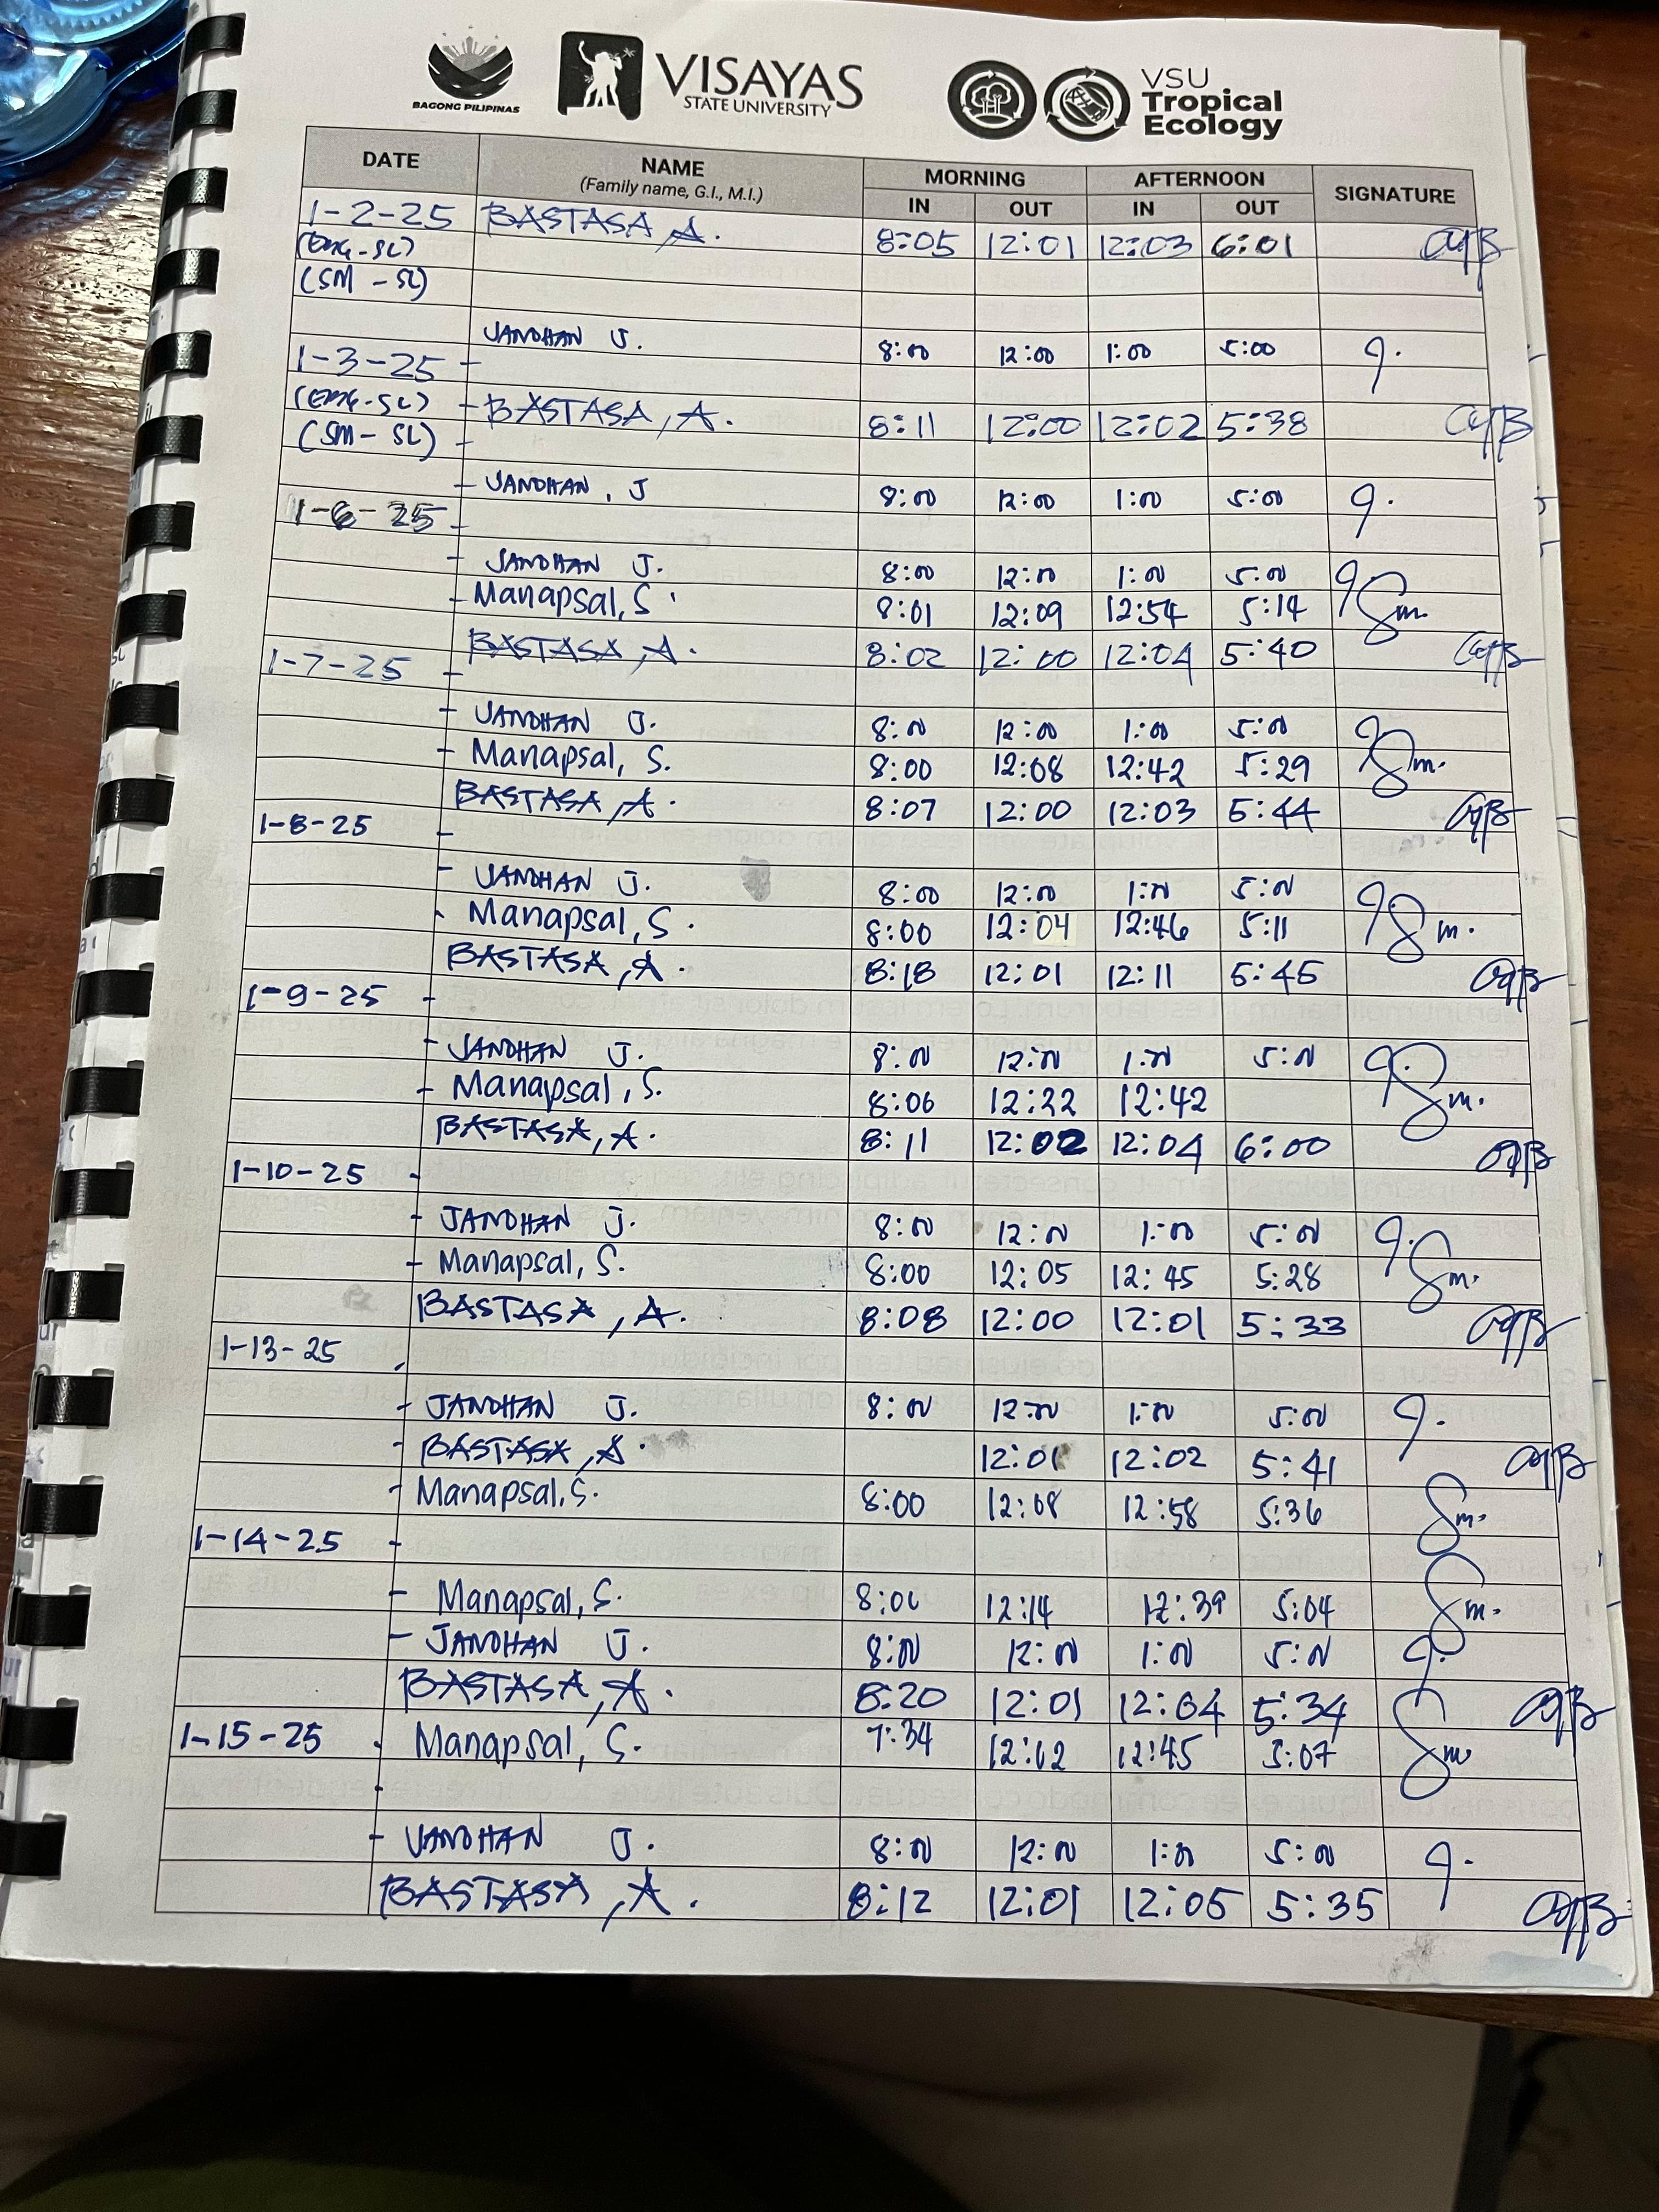 BAGONG PILIPINAS
VISAYAS
STATE UNIVERSITY
VSU
Tropical
Ecology
DATE NAME (Family name, G.I., M.I.) MORNING AFTERNOON SIGNATURE
IN OUT IN OUT
1-2-25 BASTASA, A. 8:05 12:01 12:03 6:01
(SM - SL)
JANDHAN J. 8:00 12:00 1:00 5:00
1-3-25 -
- BASTASA, A. 8:11 12:00 12:02 5:38
(SM - SL) -
- JANDHAN, J 8:00 12:00 1:00 5:00
1-6-25 -
- JANDHAN J. 8:00 12:00 1:00 5:00
- Manapsal, S. 8:01 12:09 12:54 5:14
BASTASA, A. 8:02 12:00 12:04 5:40
1-7-25 -
- JANDHAN J. 8:00 12:00 1:00 5:00
- Manapsal, S. 8:00 12:08 12:42 5:29
BASTASA, A. 8:07 12:00 12:03 5:44
1-8-25 -
- JANDHAN J. 8:00 12:00 1:00 5:00
- Manapsal, S. 8:00 12:04 12:46 5:11
BASTASA, A. 8:18 12:01 12:11 5:45
1-9-25 -
- JANDHAN J. 8:00 12:00 1:00 5:00
- Manapsal, S. 8:06 12:22 12:42
BASTASA, A. 8:11 12:02 12:04 6:00
1-10-25 -
- JANDHAN J. 8:00 12:00 1:00 5:00
- Manapsal, S. 8:00 12:05 12:45 5:28
BASTASA, A. 8:08 12:00 12:01 5:33
1-13-25
- JANDHAN J. 8:00 12:00 1:00 5:00
- BASTASA, A. 12:01 12:02 5:41
- Manapsal, S. 8:00 12:08 12:58 5:36
1-14-25 -
- Manapsal, S. 12:14 12:39 5:04
- JANDHAN J. 8:00 12:00 1:00 5:00
BASTASA, A. 8:20 12:01 12:04 5:34
1-15-25 Manapsal, S. 7:34 12:02 12:45 5:07
-
- JANDHAN J. 8:00 12:00 1:00 5:00
BASTASA, A. 8:12 12:01 12:05 5:35